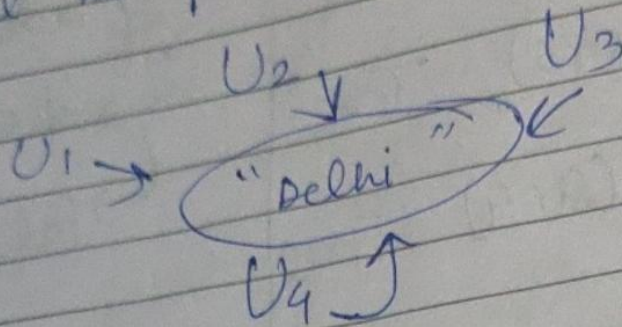 U2
U3
U1
"Delhi"
U4